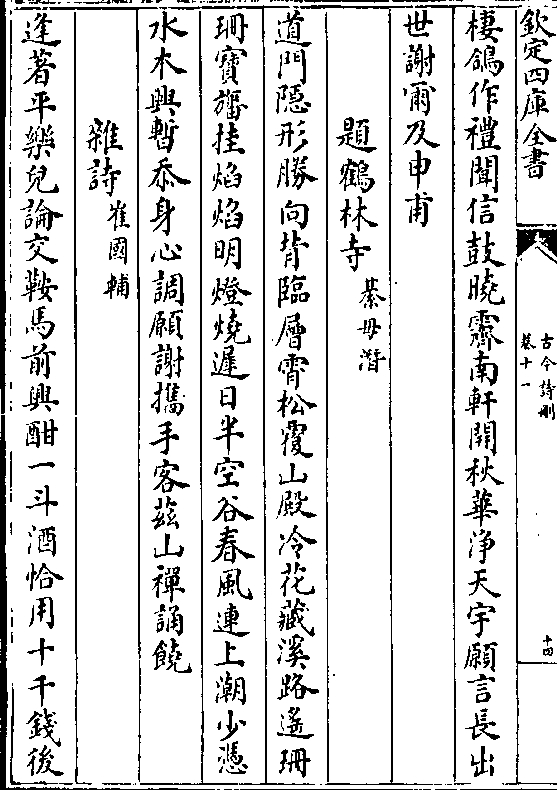 欽定四庫全書
古今詩刪
卷十一
十四
棲鴿作禮聞信鼓曉霽南軒開秋華淨天宇願言長出
世謝爾及申甫
題鶴林寺 綦毋潛
道門隱形勝向背臨層霄松覆山殿冷花藏溪路遙珊
珊寶旛挂焰焰明燈燒遲日半空谷春風連上潮少憑
水木興暫忝身心調願謝攜手客茲山禪誦饒
雜詩 崔國輔
逢著平樂兒論交鞍馬前與酣一斗酒恰用十千錢後